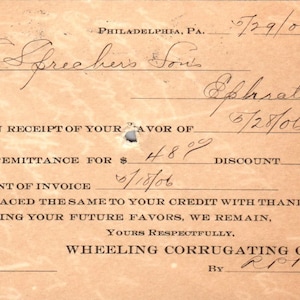 PHILADELPHIA, PA. 5/29/0
Spreahers Sons
Ephrat
N RECEIPT OF YOUR FAVOR OF 5/28/06
EMITTANCE FOR $ 48 00 DISCOUNT
NT OF INVOICE 5/18/06
ACED THE SAME TO YOUR CREDIT WITH THAN
ING YOUR FUTURE FAVORS, WE REMAIN,
YOURS RESPECTFULLY,
WHEELING CORRUGATING C
BY